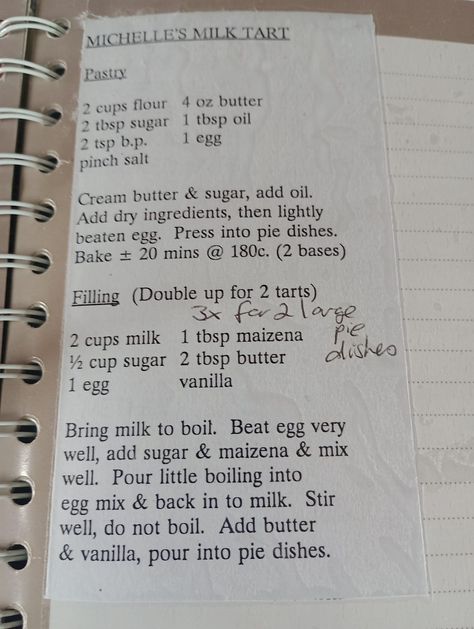 MICHELLE'S MILK TART
Pastry
2 cups flour 4 oz butter
2 tbsp sugar 1 tbsp oil
2 tsp b.p. 1 egg
pinch salt
Cream butter & sugar, add oil.
Add dry ingredients, then lightly
beaten egg. Press into pie dishes.
Bake ± 20 mins @ 180c. (2 bases)
Filling (Double up for 2 tarts)
3x for 2 large
pie
dishes
2 cups milk 1 tbsp maizena
½ cup sugar 2 tbsp butter
1 egg vanilla
Bring milk to boil. Beat egg very
well, add sugar & maizena & mix
well. Pour little boiling into
egg mix & back in to milk. Stir
well, do not boil. Add butter
& vanilla, pour into pie dishes.